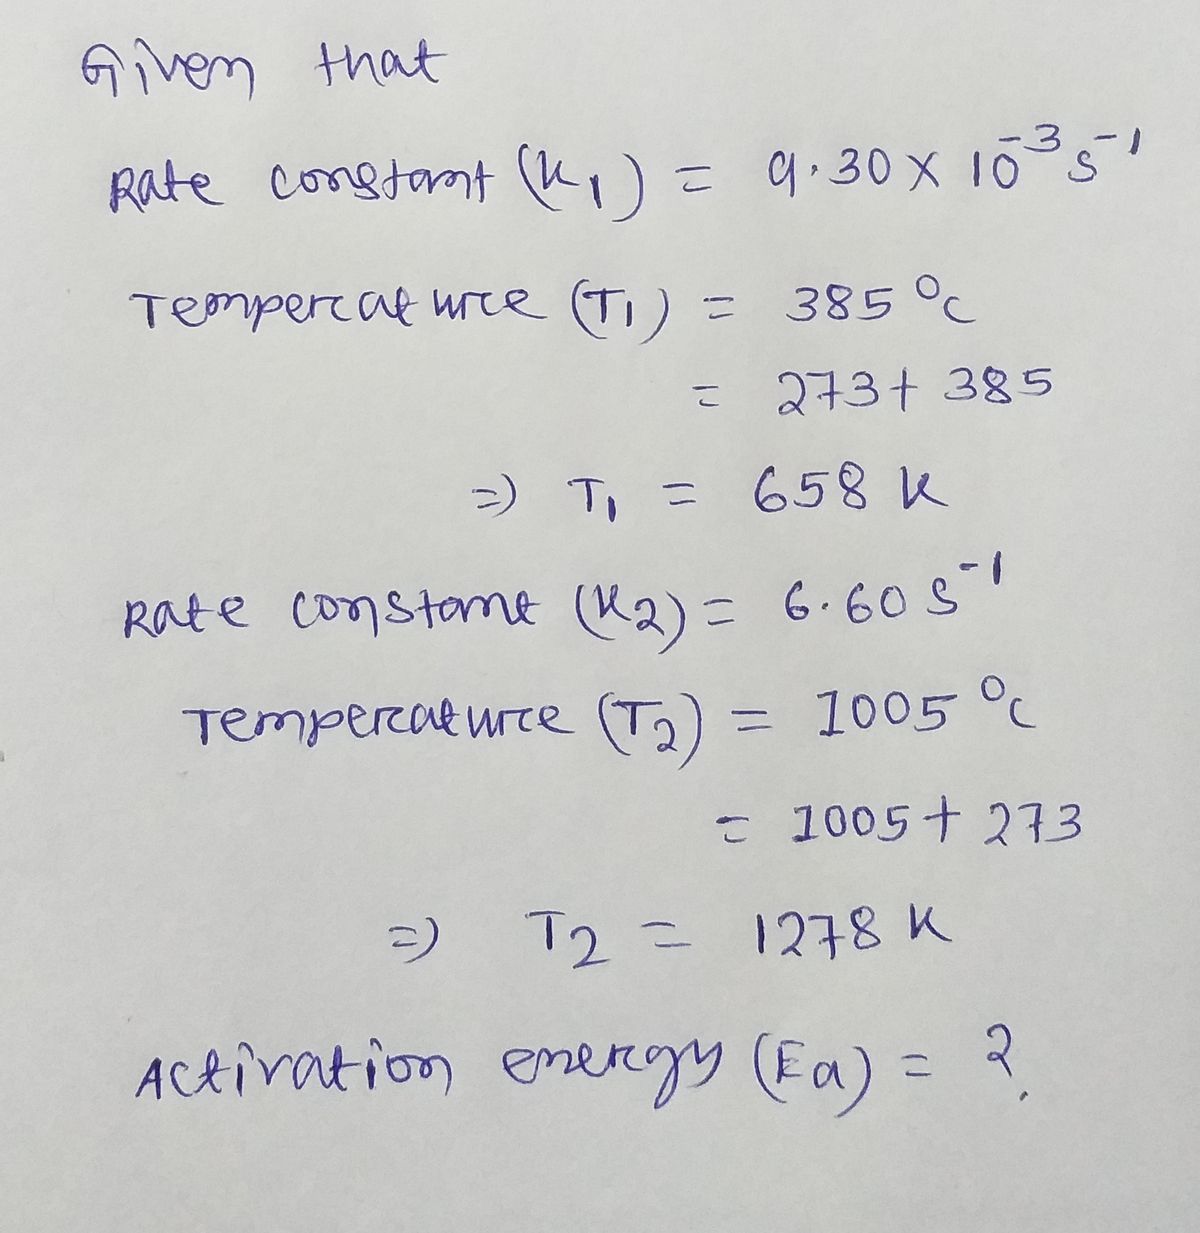 Given that
Rate constant (K₁) = 9.30 × 10⁻³ s⁻¹
Temperature (T₁) = 385 °C
= 273 + 385
=> T₁ = 658 K
Rate constant (K₂) = 6.60 s⁻¹
Temperature (T₂) = 1005 °C
= 1005 + 273
=> T₂ = 1278 K
Activation energy (Ea) = ?